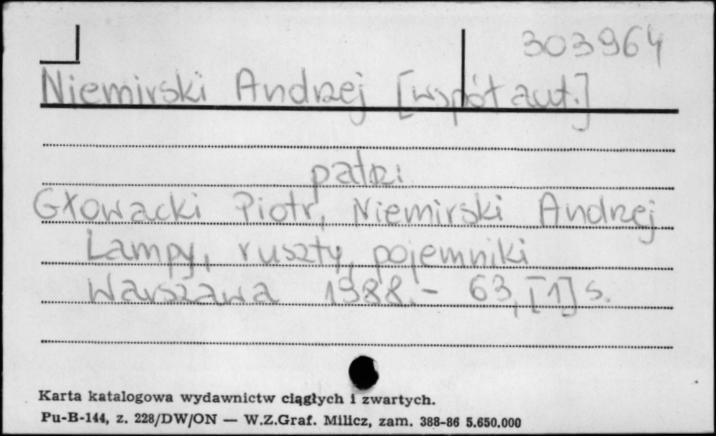 303964
Niemirski Andrzej [współaut.]
patrz:
Głowacki Piotr, Niemirski Andrzej
Lampy, ruszty, pojemniki
Warszawa 1988.- 63,[1] s.
Karta katalogowa wydawnictw ciągłych i zwartych.
Pu-B-144, z. 228/DW/ON — W.Z.Graf. Milicz, zam. 388-86 5.650.000